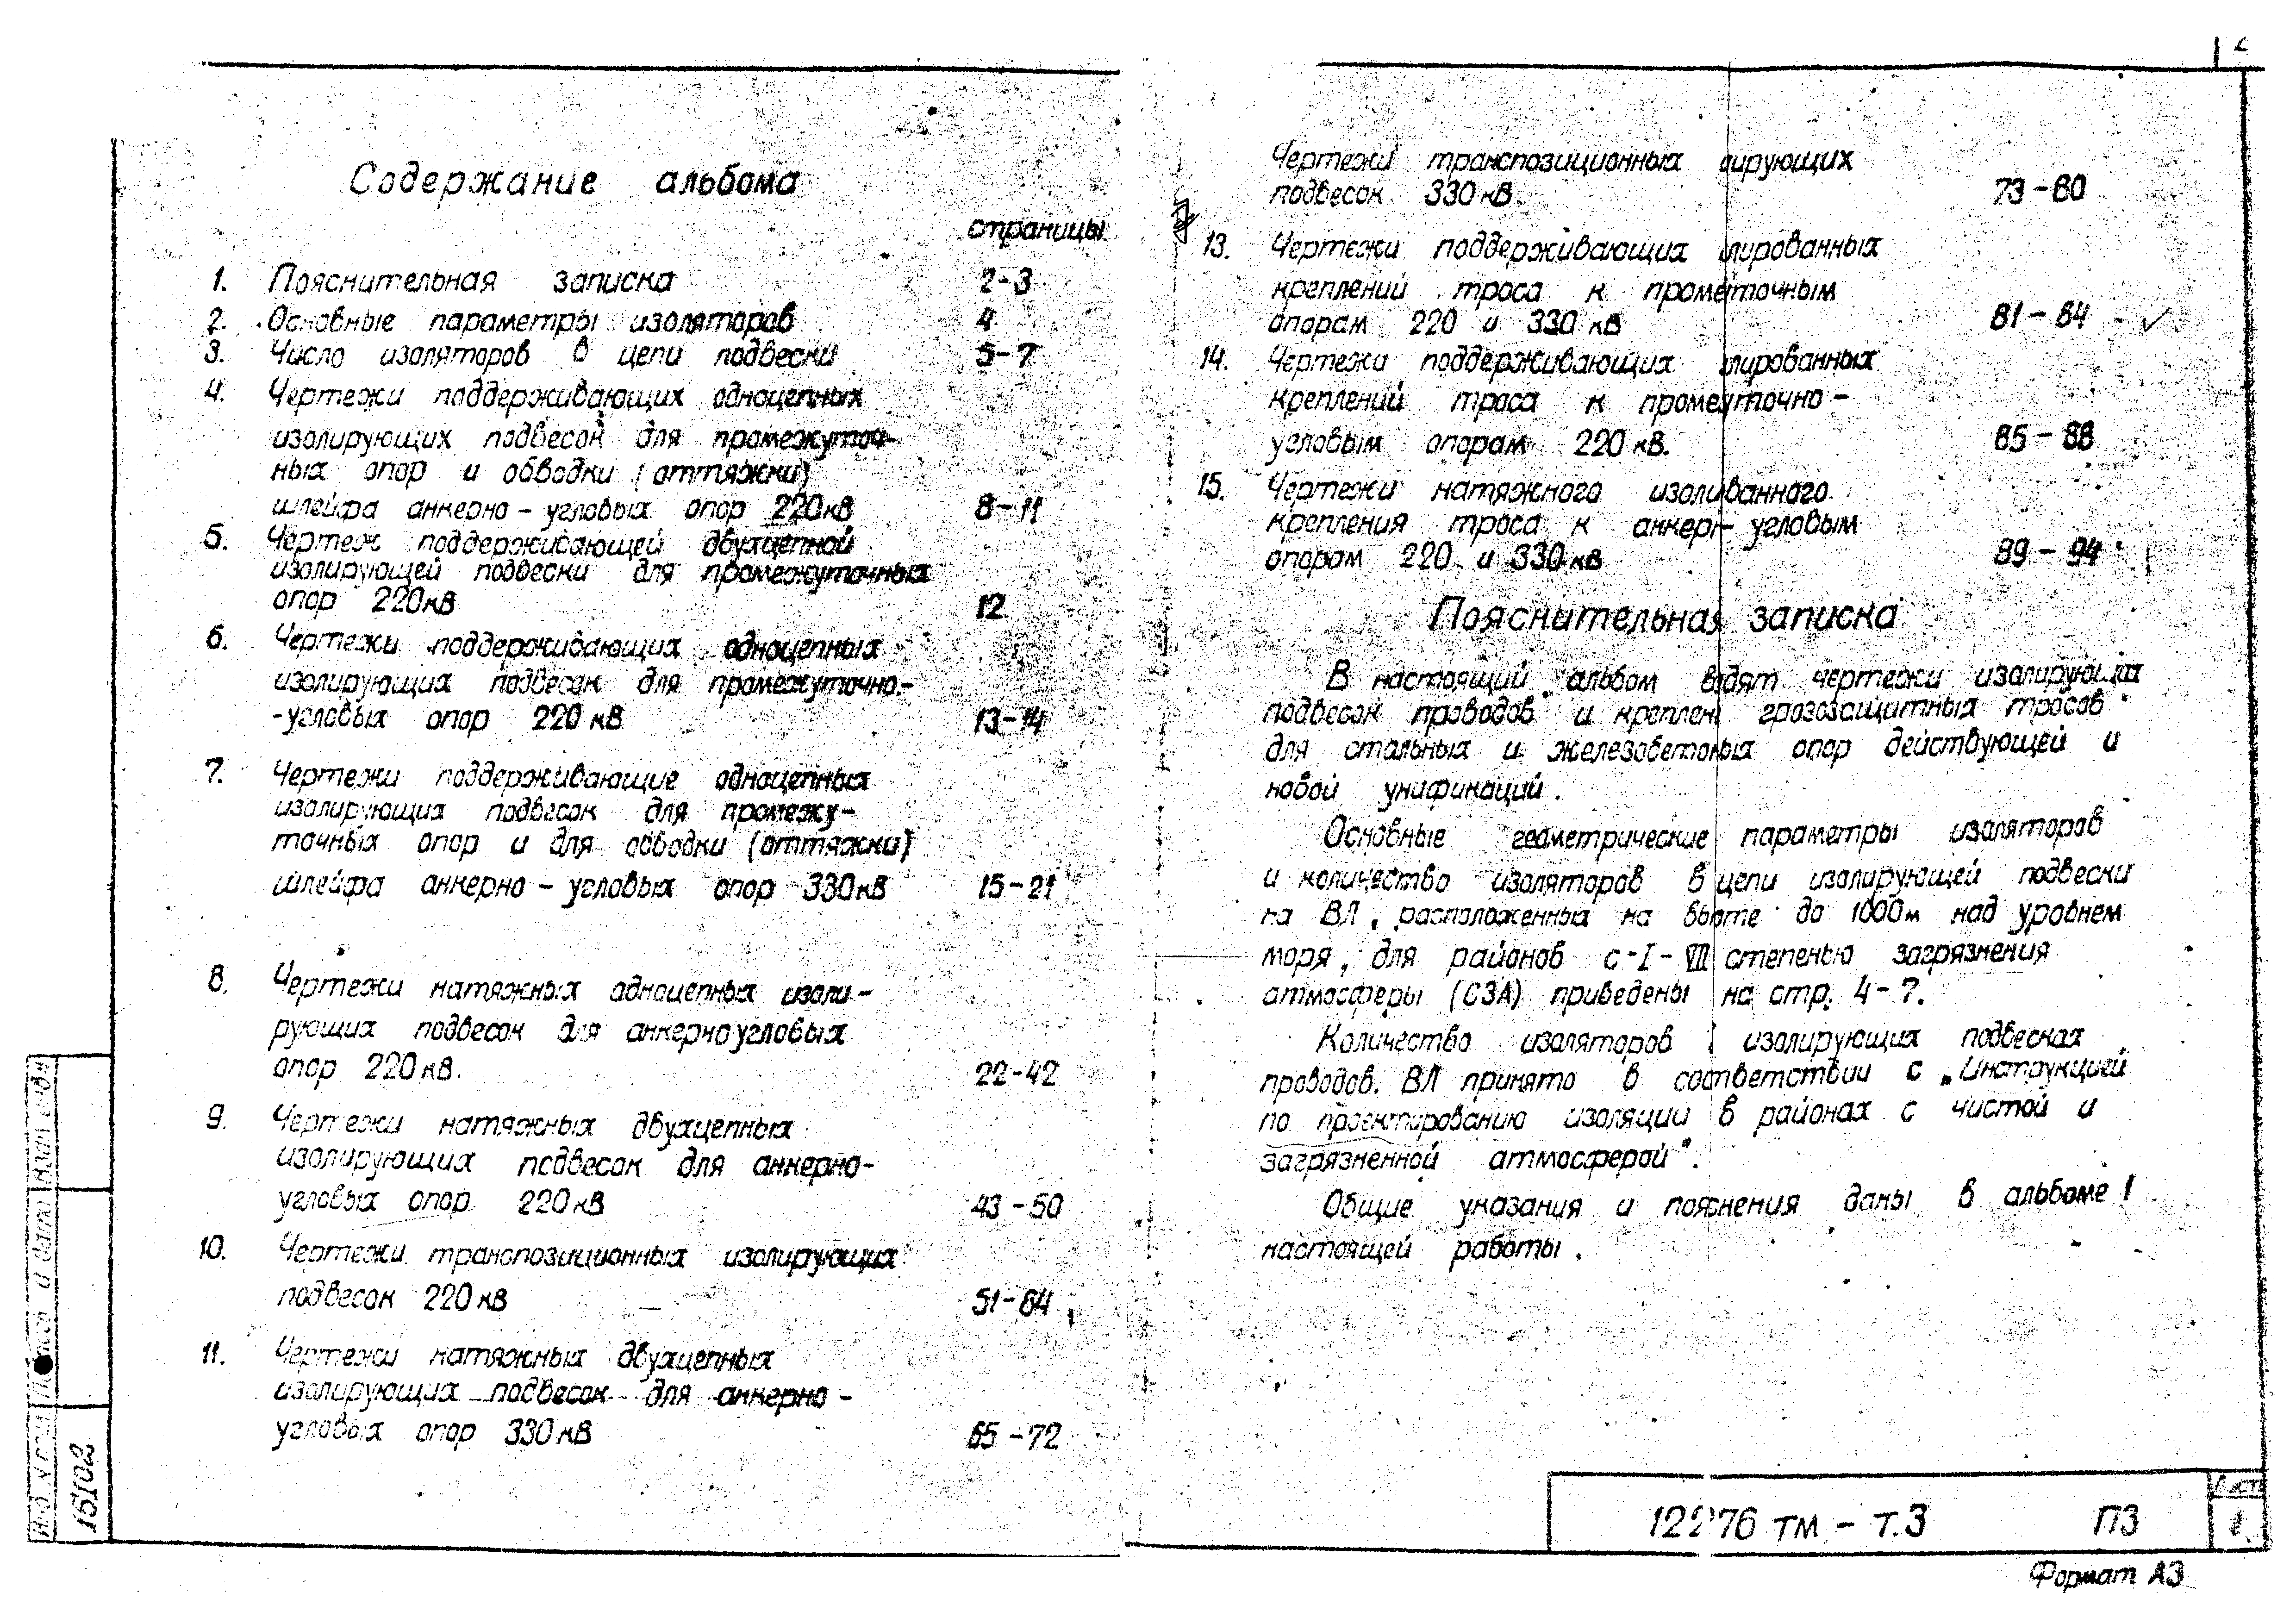 Содержание альбома
страницы
1. Пояснительная записка 2-3
2. Основные параметры изоляторов 4
3. Число изоляторов в цепи подвески 5-7
4. Чертежи поддерживающих одноцепных
изолирующих подвесок для промежуточ-
ных опор и обводки (оттяжки)
шлейфа анкерно-угловых опор 220кВ 8-11
5. Чертеж поддерживающей двухцепной
изолирующей подвески для промежуточных
опор 220кВ 12
6. Чертежи поддерживающих одноцепных
изолирующих подвесок для промежуточно-
-угловых опор 220кВ 13-14
7. Чертежи поддерживающие одноцепных
изолирующих подвесок для промежу-
точных опор и для обводки (оттяжки)
шлейфа анкерно-угловых опор 330кВ 15-21
8. Чертежи натяжных одноцепных изоли-
рующих подвесок для анкерноугловых
опор 220кВ. 22-42
9. Чертежи натяжных двухцепных
изолирующих подвесок для анкерно-
угловых опор 220кВ 43-50
10. Чертежи транспозиционных изолирующих
подвесок 220кВ 51-64
11. Чертежи натяжных двухцепных
изолирующих подвесок для анкерно-
угловых опор 330кВ 65-72
Чертежи транспозиционных лирующих
подвесок 330кВ. 73-80
13. Чертежи поддерживающих лированных
креплений троса к прометочным
опорам 220 и 330кВ 81-84
14. Чертежи поддерживающих лированных
креплений троса к промеуточно-
угловым опорам 220кВ. 85-88
15. Чертежи натяжного изоливанного
крепления троса к анкер-угловым
опорам 220 и 330кВ 89-94
Пояснительная записка
В настоящий альбом входят чертежи изолирующих
подвесок проводов и креплен грозозащитных тросов
для стальных и железобетоных опор действующей и
новой унификаций.
Основные геометрические параметры изоляторов
и количество изоляторов в цепи изолирующей подвески
на ВЛ, расположенных на высоте до 1000м над уровнем
моря, для районов с-I-VII степенью загрязнения
атмосферы (СЗА) приведены на стр. 4-7.
Количество изоляторов изолирующих подвесках
проводов. ВЛ принято в соответствии с „Инструкцией
по проектированию изоляции в районах с чистой и
загрязненной атмосферой".
Общие указания и пояснения даны в альбоме 1
настоящей работы.
Инв. N подл.
15102
12276 тм - т.3 ПЗ
Лист
1
Формат А3